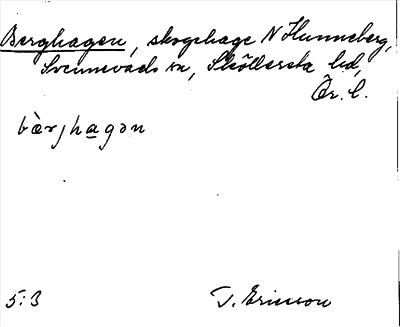 Berghagen, skogshage N Hunneberg,
Svennevads sn, Sköllersta hd,
Ör. l.
bàrjhagən
5:3
T. Ericsson